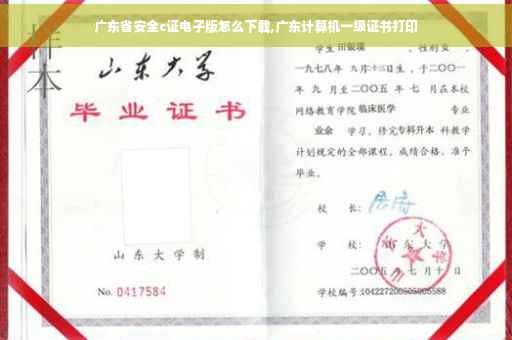 广东省安全c证电子版怎么下载,广东计算机一级证书打印
样本
山东大学
毕业证书
山东大学制
No. 0417584
性别
一九七八年 九月十三日生,于二〇〇一
年 九 月至二〇〇五 年 七 月在本校
网络教育学院临床医学 专业
业余 学习,修完专科升本 科教学
计划规定的全部课程,成绩合格,准予
毕业。
校 长:
学 校: 山东大学
二〇〇五 年 七 月 十 日
学校编号:104227200505005588